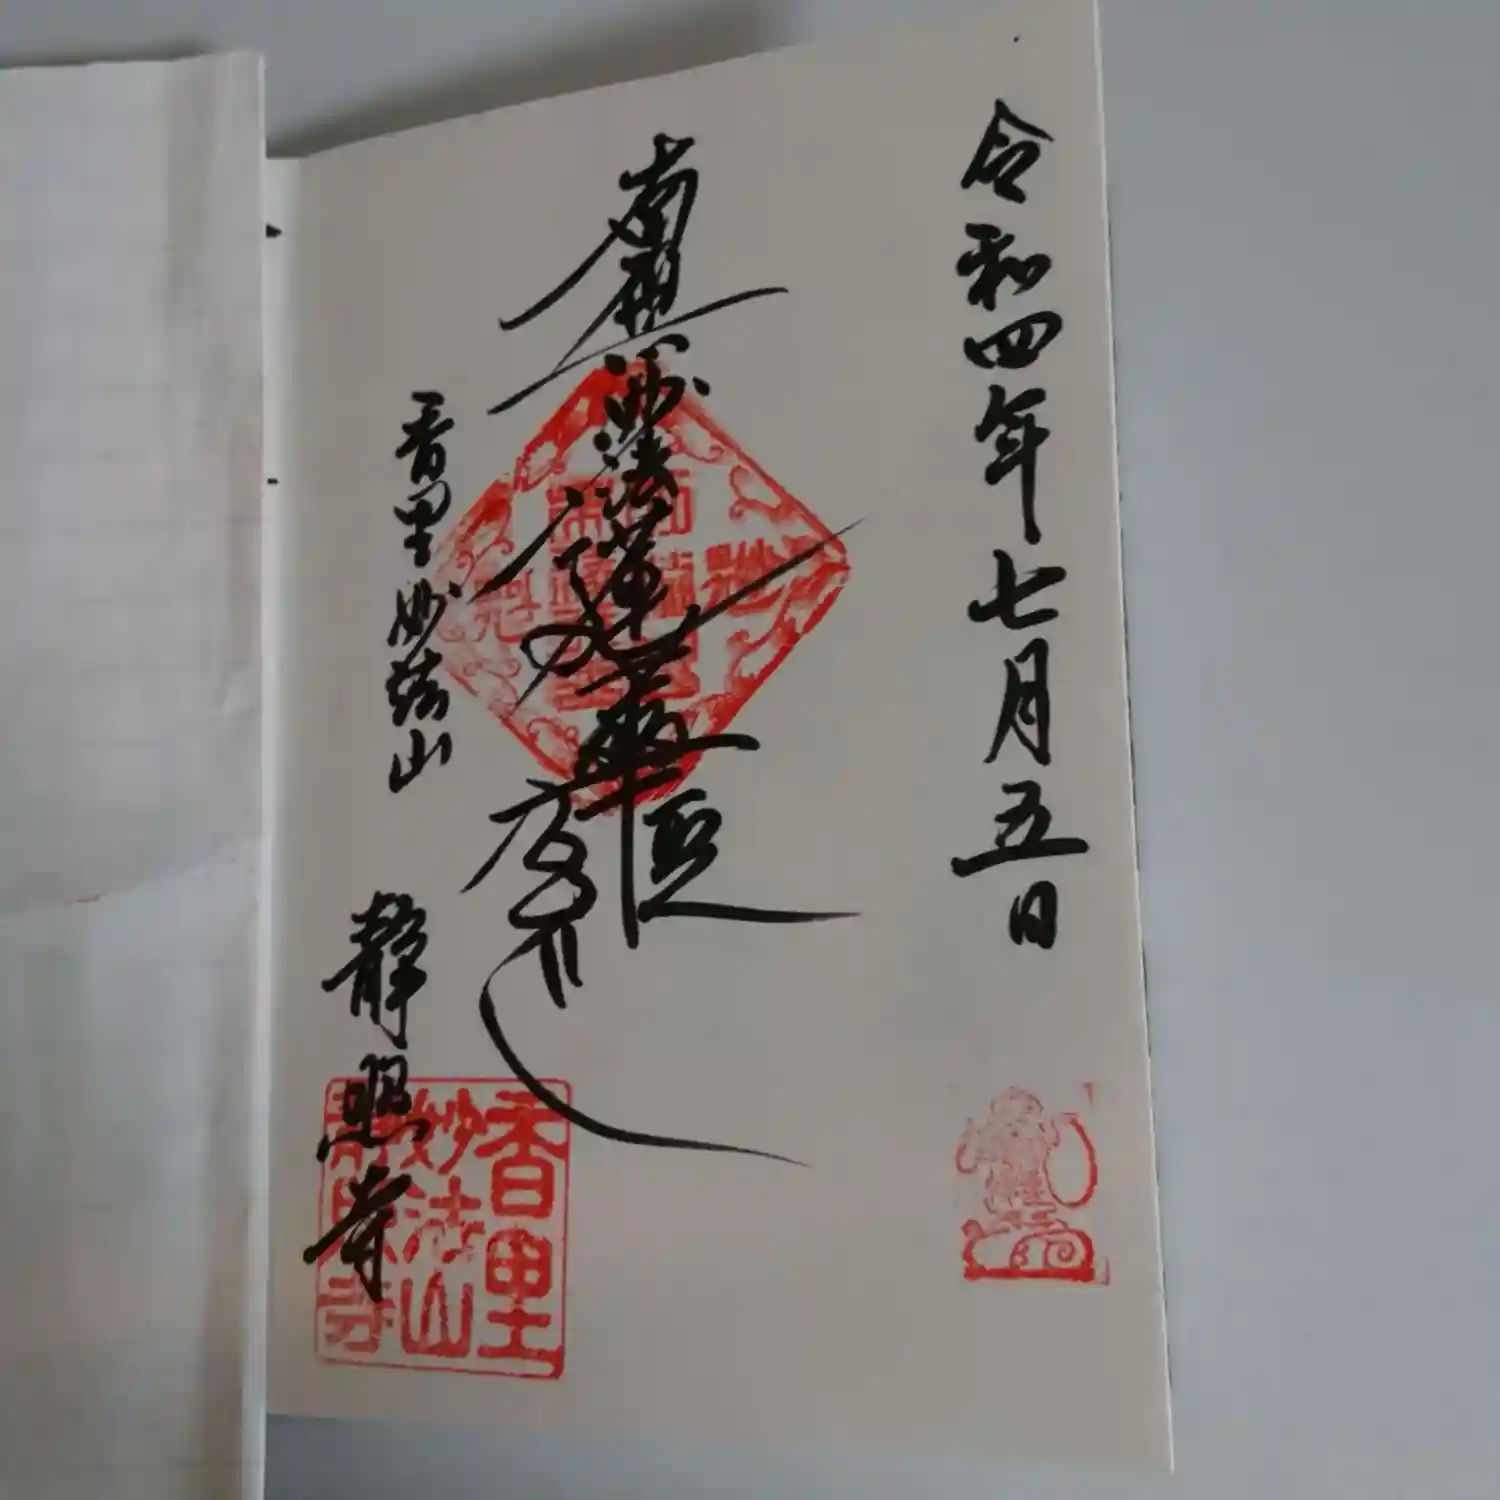 令和四年七月五日
南無妙法蓮華経
香里妙法山
静照寺
香里
妙法山
静照寺